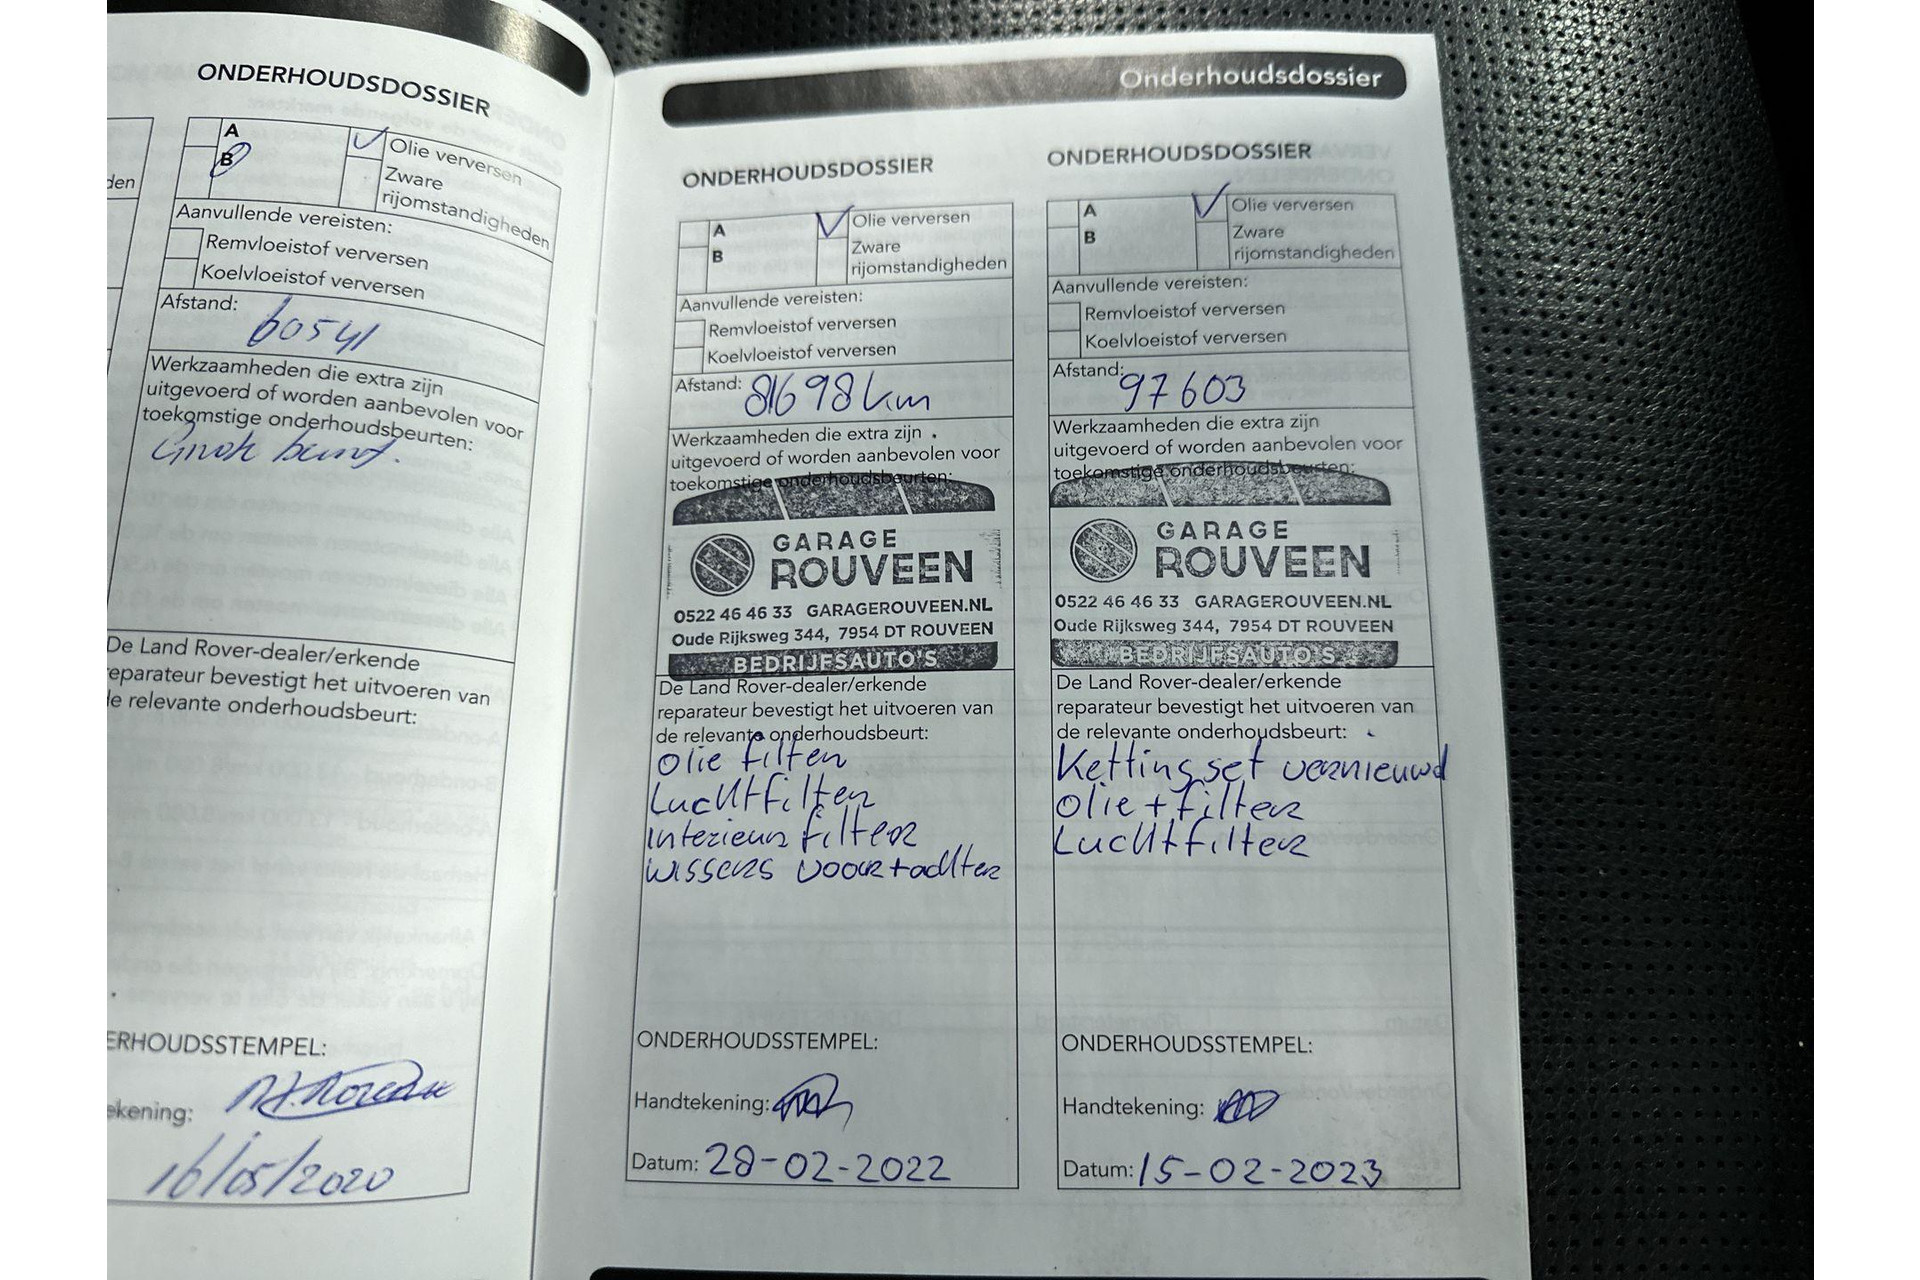 ONDERHOUDSDOSSIER
A
B
Olie verversen
Zware
rijomstandigheden
Aanvullende vereisten:
Remvloeistof verversen
Koelvloeistof verversen
Afstand:
60541
Werkzaamheden die extra zijn
uitgevoerd of worden aanbevolen voor
toekomstige onderhoudsbeurten:
De Land Rover-dealer/erkende
eparateur bevestigt het uitvoeren van
e relevante onderhoudsbeurt:
ERHOUDSSTEMPEL:
ekening:
16/05/2020
den
Onderhoudsdossier
ONDERHOUDSDOSSIER
A
B
Olie verversen
Zware
rijomstandigheden
Aanvullende vereisten:
Remvloeistof verversen
Koelvloeistof verversen
Afstand: 81698 km
Werkzaamheden die extra zijn
uitgevoerd of worden aanbevolen voor
toekomstige onderhoudsbeurten:
GARAGE
ROUVEEN
0522 46 46 33 GARAGEROUVEEN.NL
Oude Rijksweg 344, 7954 DT ROUVEEN
BEDRIJFSAUTO'S
De Land Rover-dealer/erkende
reparateur bevestigt het uitvoeren van
de relevante onderhoudsbeurt:
Olie filter
Luchtfilter
Interieur filter
wissers voor+achter
ONDERHOUDSSTEMPEL:
Handtekening:
Datum: 28-02-2022
ONDERHOUDSDOSSIER
A
B
Olie verversen
Zware
rijomstandigheden
Aanvullende vereisten:
Remvloeistof verversen
Koelvloeistof verversen
Afstand: 97603
Werkzaamheden die extra zijn
uitgevoerd of worden aanbevolen voor
toekomstige onderhoudsbeurten:
GARAGE
ROUVEEN
0522 46 46 33 GARAGEROUVEEN.NL
Oude Rijksweg 344, 7954 DT ROUVEEN
BEDRIJFSAUTO'S
De Land Rover-dealer/erkende
reparateur bevestigt het uitvoeren van
de relevante onderhoudsbeurt:
Ketting set vernieuwd
Olie + filter
Luchtfilter
ONDERHOUDSSTEMPEL:
Handtekening:
Datum: 15-02-2023